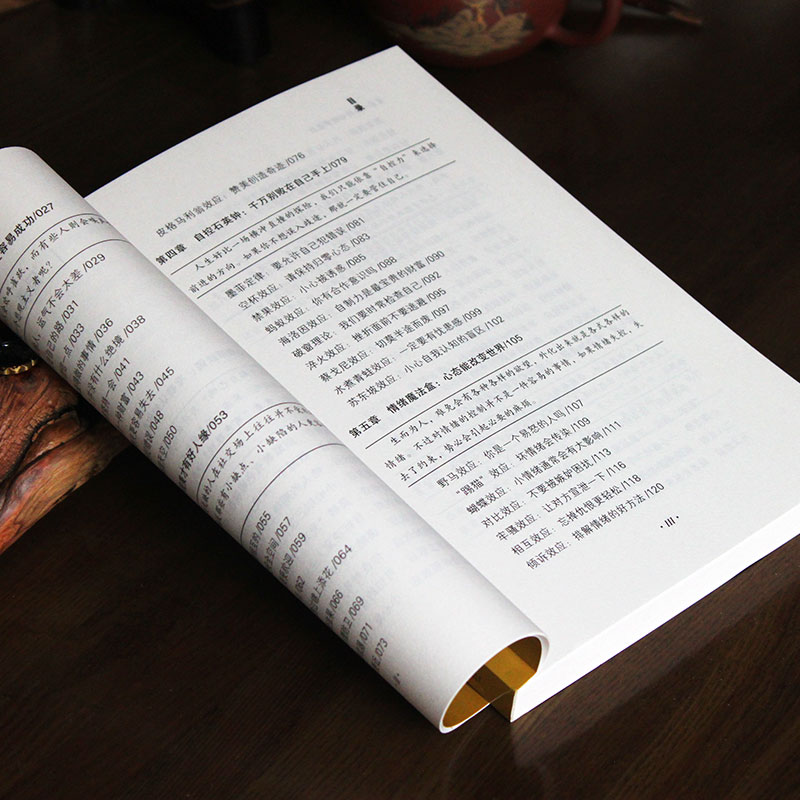 容易成功/027
而有些人则会
运气不会太差/029
的路/031
一点/033
的事情/036
有什么绝境/038
一会/041
财富/043
容易失去/045
/048
/050
有好人缘/053
的人在社交场上往往并不
有小缺点、小缺陷的人
/055
空间/057
/059
/062
锦上添花/064
/066
/069
/071
/073
目录
皮格马利翁效应:赞美创造奇迹/076
第四章 自控石英钟:千万别败在自己手上/079
人生好比一场横冲直撞的探险,我们只能依靠“自控力”来选择
前进的方向。如果你不想误入歧途,那就一定要学住自己。
墨菲定律:要允许自己犯错误/081
空杯效应:请保持归零心态/083
禁果效应:小心被诱惑/085
蚂蚁效应:你有合作意识吗/088
海潮因效应:自制力是最宝贵的财富/090
破窗理论:我们要时常检查自己/092
淬火效应:挫折面前不要逃避/095
蔡戈尼效应:切莫半途而废/097
水煮青蛙效应:一定要有忧患感/099
苏东坡效应:小心自我认知的盲区/102
第五章 情绪魔法盒:心态能改变世界/105
生而为人,难免会有各种各样的欲望,外化出来就是各式各样的
情绪。不过对情绪的控制并不是一件容易的事情,如果情绪失控,失
去了约束,势必会引起必来的麻烦。
野马效应:你是一个易怒的人吗/107
“踢猫”效应:坏情绪会传染/109
蝴蝶效应:小情绪通常会有大影响/111
对比效应:不要被嫉妒困扰/113
牢骚效应:让对方宣泄一下/116
相互效应:忘掉仇恨更轻松/118
倾诉效应:排解情绪的好方法/120
·III·